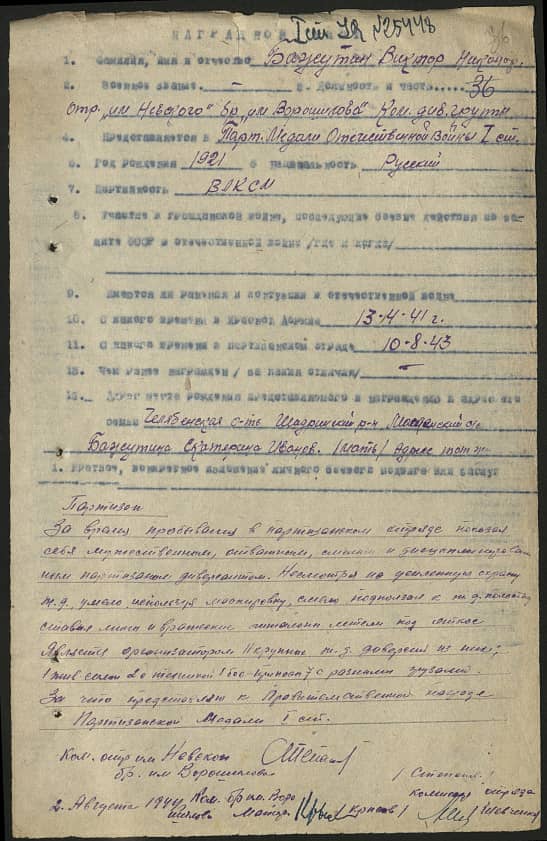 НАГРАДНОЙ I ст УК №25448 36
1. Фамилия, имя и отчество Бажутин Виктор Никонор.
2. Военное звание – 3. Должность и часть..... 36
отр. "им Невского" бр "им Ворошилова" Ком. див. группы
4. Представляется к Парт. Медали Отечественной Войны I ст.
5. Год рождения 1921 6 национальность Русский
7. Партийность ВЛКСМ
8. Участие в гражданской войне, последующие боевые действия по за-
щите СССР и отечественной войне /где и когда/
9. Имеются ли ранения и контузии в отечественной войне
10. С какого времени в Красной Армии 13-4-41 г.
11. С какого времени в партизанском отряде 10-8-43
12. Чем ранее награжден /за какие отличия/ –
13. Адрес места рождения представляемого к награждению и адрес его
семьи Челябенская о-ть Шадринский р-н
Бажутина Екатерина Иванов. /мать/ Адрес тот же
1. Краткое, конкретное изложение личного боевого подвига или заслуг
Партизан
За время пребывания в партизанском отряде показал
себя мужественным, отважным, смелым и дисциплинирован-
ным партизаном диверсантом. Несмотря на усиленную охрану
ж.д. умело используя маскировку, смело подползал к ж.д. полотну
ставил мины и вражеские эшелоны летели под откос
Является организатором крупных ж.д. диверсий из них:
с разными грузами.
За что представляю к Правительственной награде
Партизанской Медали I ст.
Ком. отр им Невского
бр. им Ворошилова / Степан.
2. Августа 1944 Ком. бр им. Воро комиссар отряда
шилова Майор / Шевченко